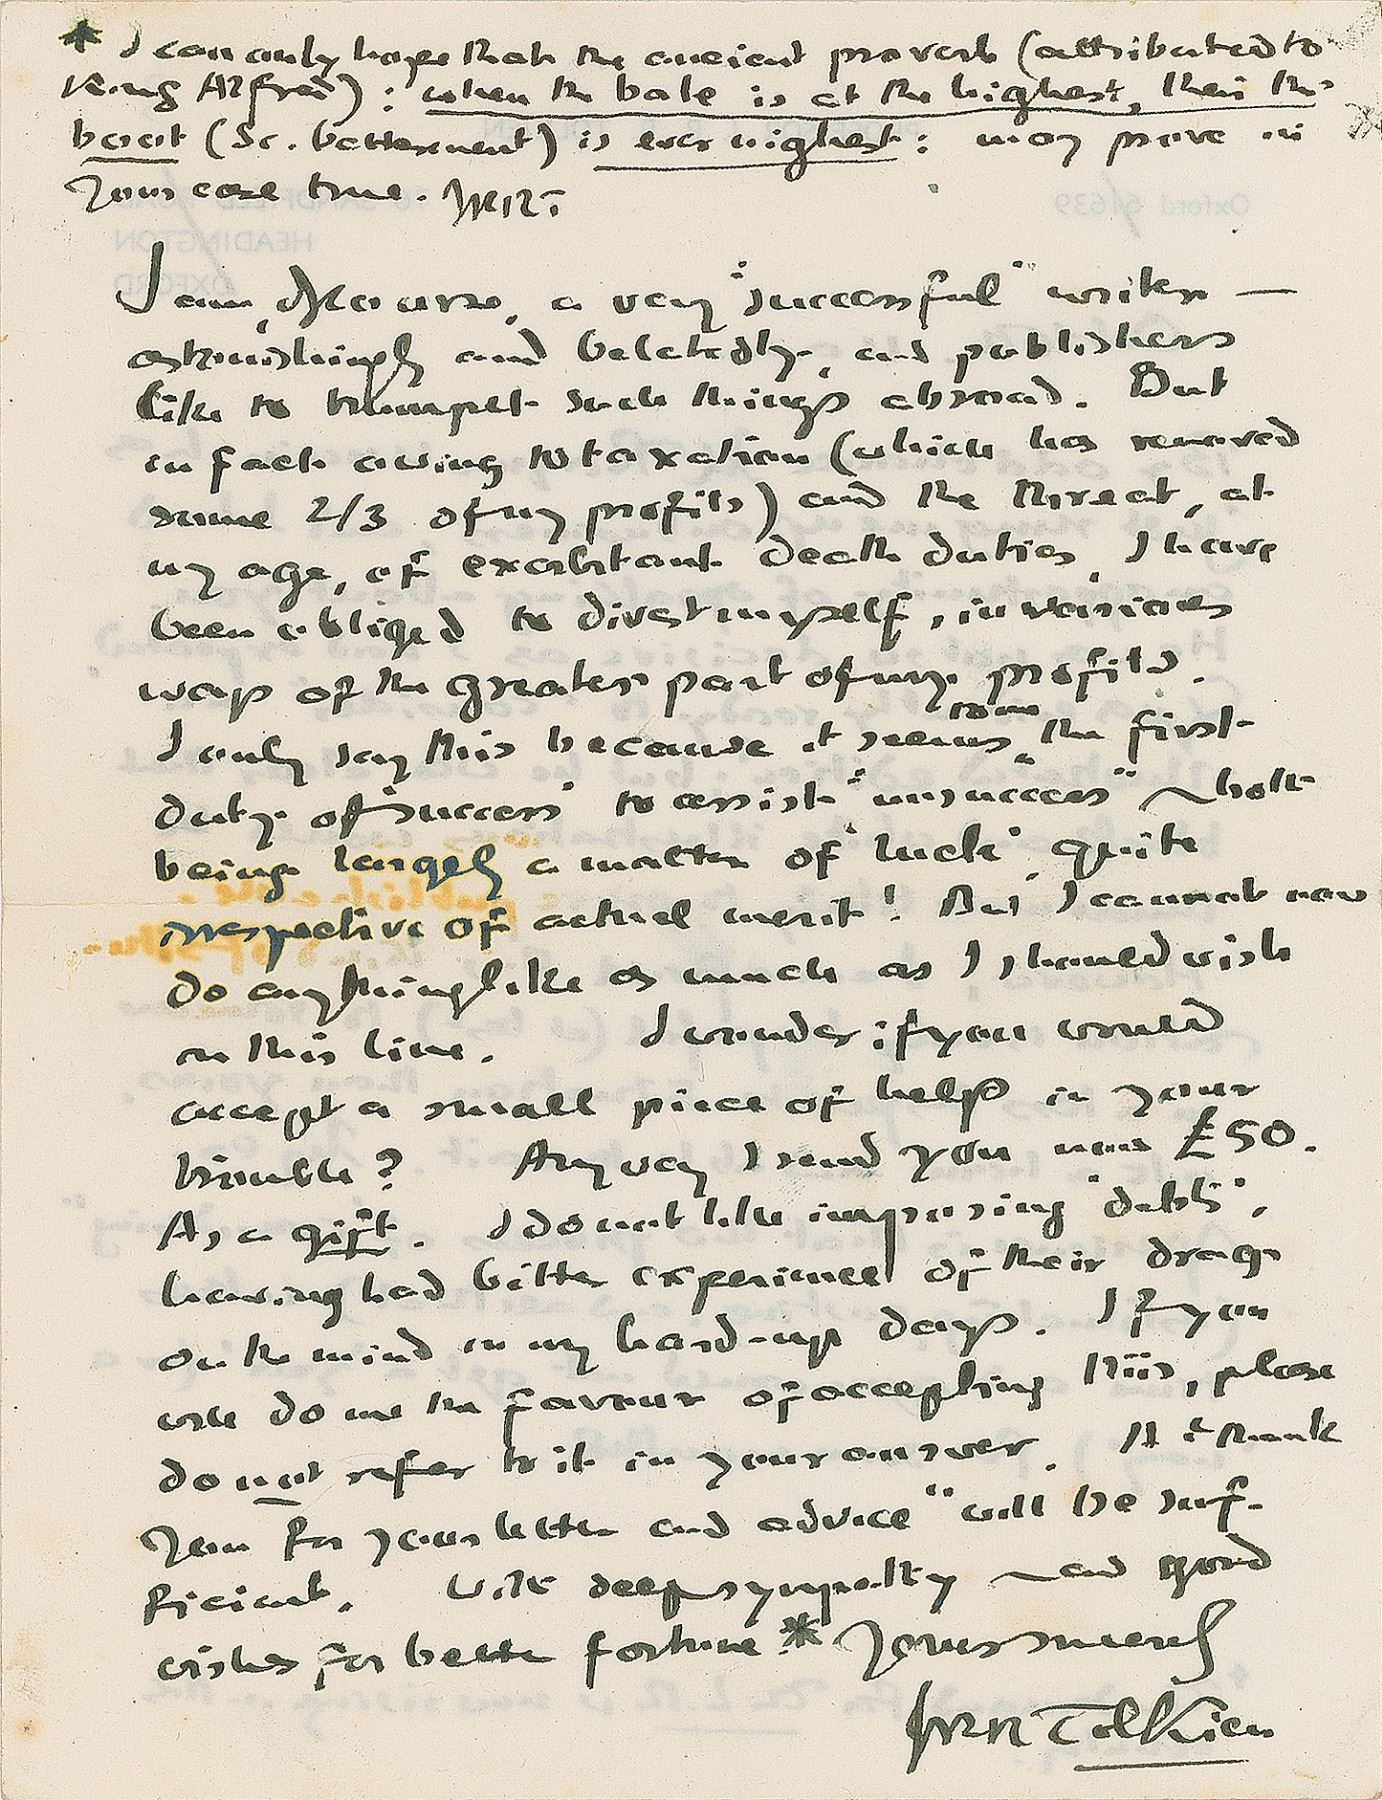 * I can only hope that the ancient proverb (attributed to
King Alfred): when the bale is at the highest, then the
boot (sc. betterment) is ever nighest: may prove in
your case true. JRRT.
Oxford 61639
HEADINGTON
OXFORD
I am, of course, a very "successful" writer —
astonishingly and belatedly, and publishers
like to trumpet such things abroad. But
in fact owing to taxation (which has removed
some 2/3 of my profits) and the threat, at
my age, of exorbitant death duties, I have
been obliged to divest myself, in various
ways of the greater part of my profits.
I only say this because it seems to me the first
duty of "success" to assist "unsuccess" ~ both
being largely a matter of 'luck' quite
irrespective of actual merit! But I cannot now
do anything like as much as I should wish
in this line. I wonder if you would
accept a small piece of help in your
trouble? Anyway I send you now £50.
As a gift. I do not like imposing 'debts',
having had bitter experience of their drag
on the mind in my hard-up days. If you
will do me the favour of accepting this, please
do not refer to it in your answer. A "thank
you for your letter and advice" will be suf-
ficient. With deep sympathy and good
wishes for better fortune * Yours sincerely
JRR Tolkien